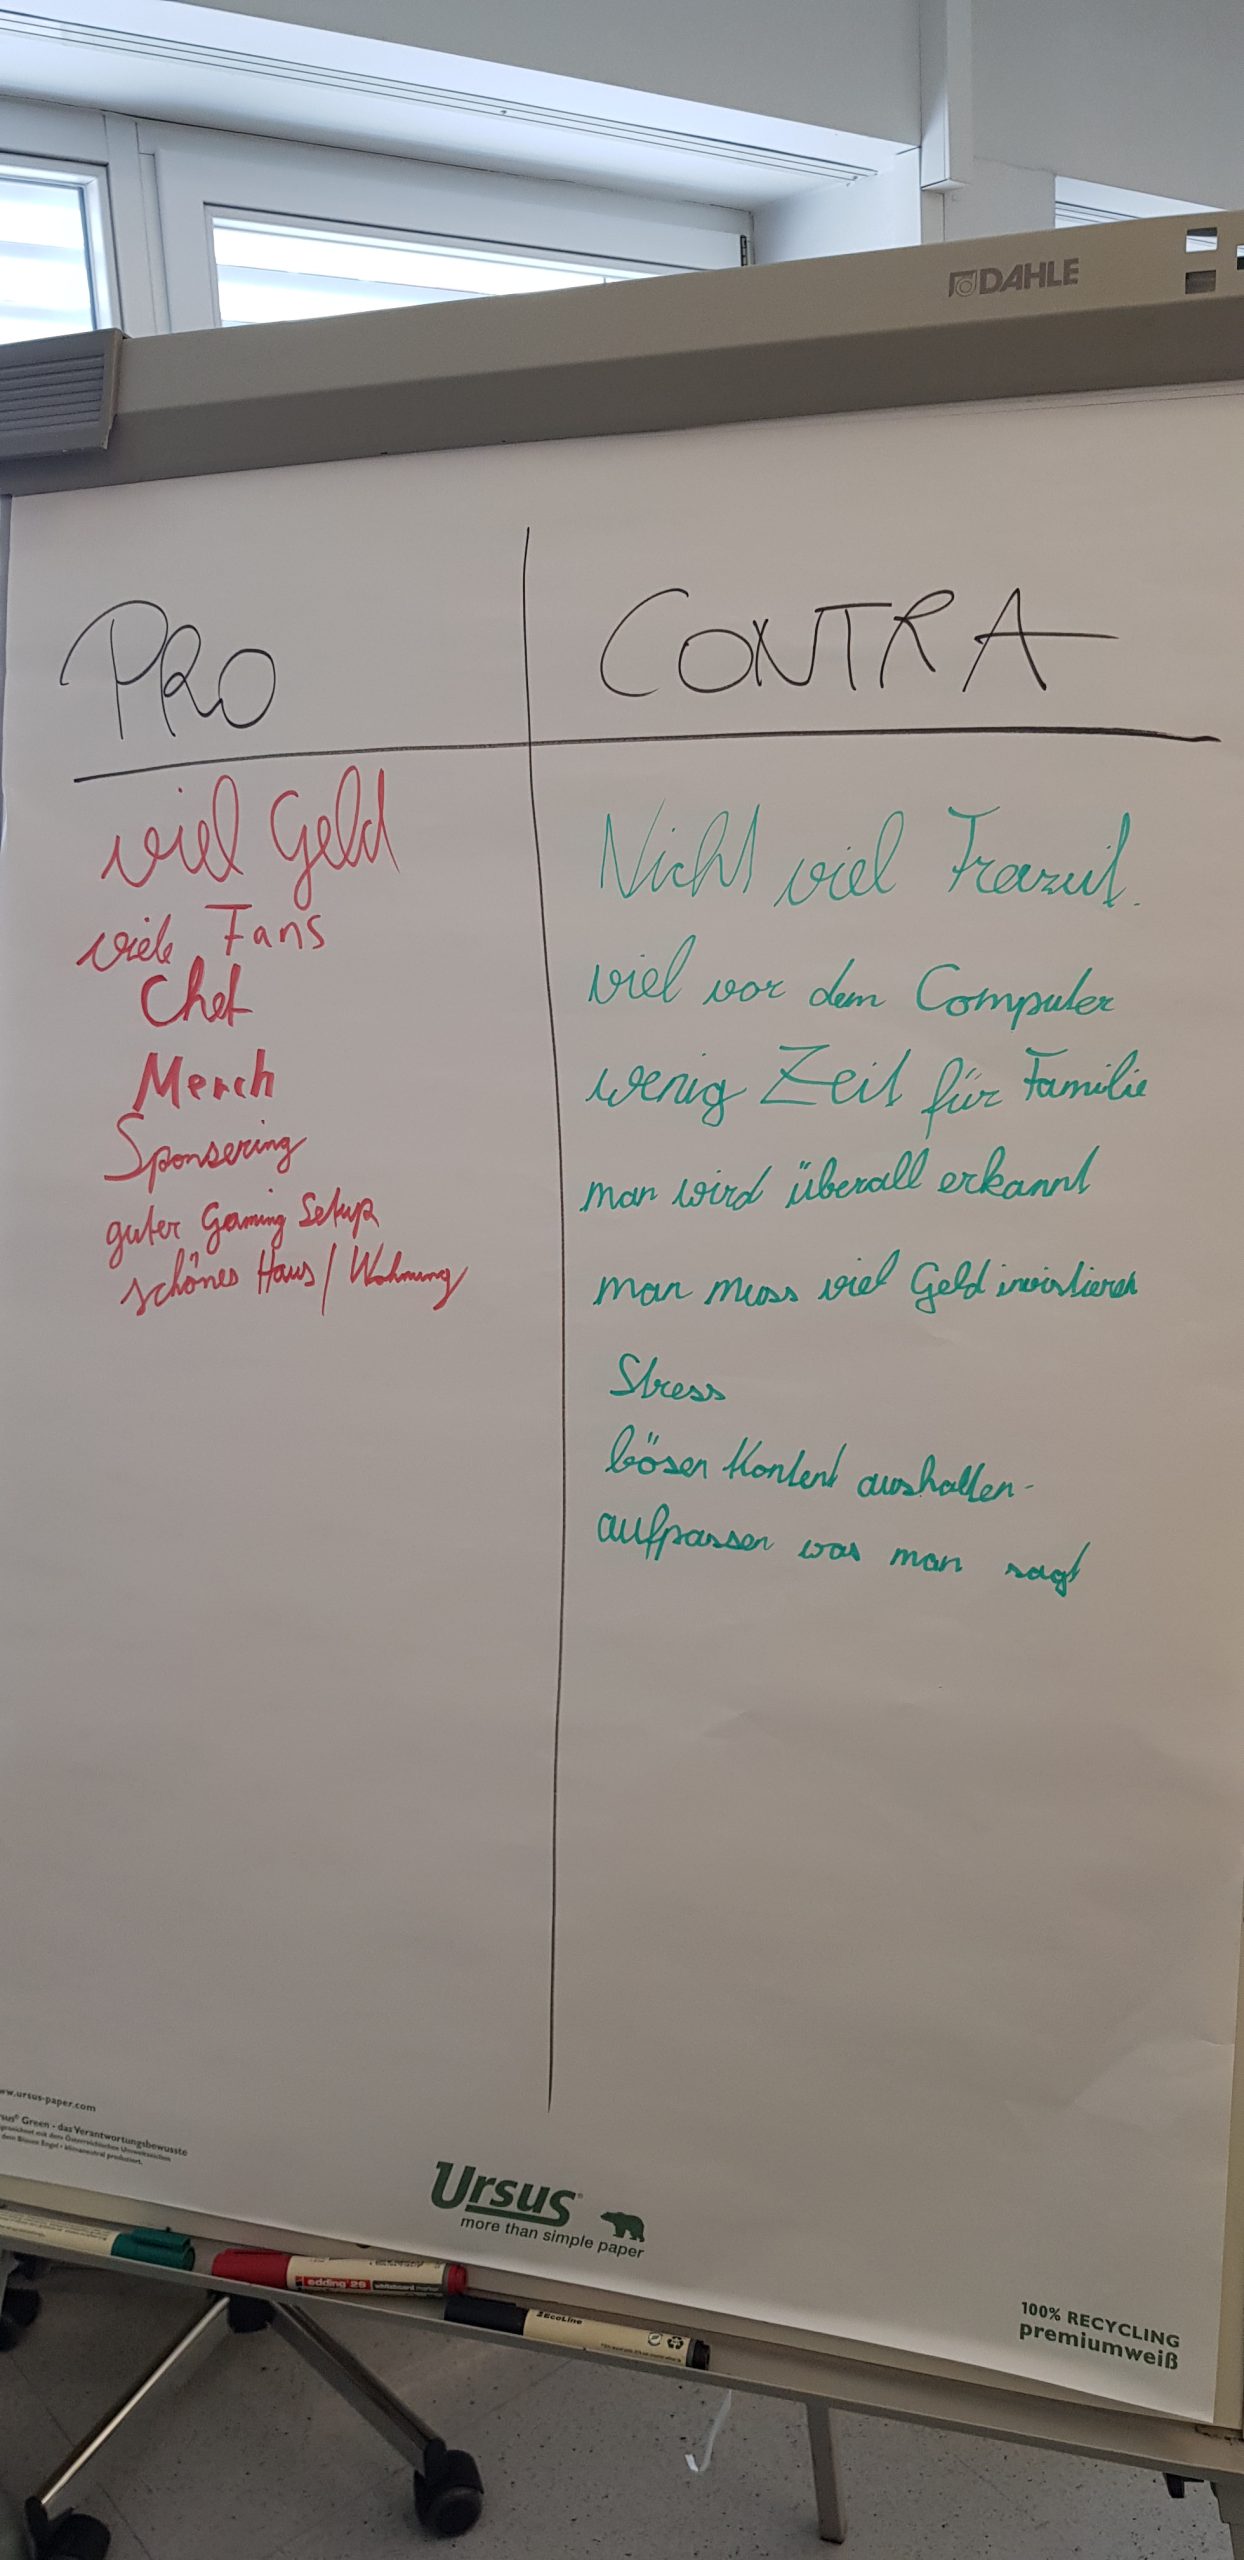 DAHLE
PRO
CONTRA
viel Geld
viele Fans
Chef
Merch
Sponsering
guter Gaming Setup
schönes Haus / Wohnung
Nicht viel Frazeit.
viel vor dem Computer
wenig Zeit für Familie
man wird überall erkannt
man muss viel Geld invistieren
Stress
bösen Kontent aushalten-
aufpassen was man sagt
ww.ursus-paper.com
sus® Green - das Verantwortungsbewusste
Ursus®
more than simple paper
edding 29 whiteboard marker
EcoLine
100% RECYCLING
premiumweiß